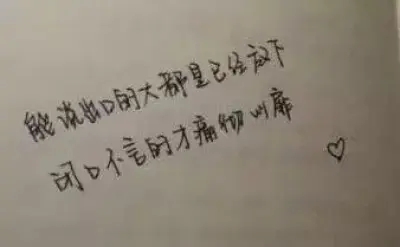 能说出口的大都是已经放下
闭口不言的才痛彻心扉